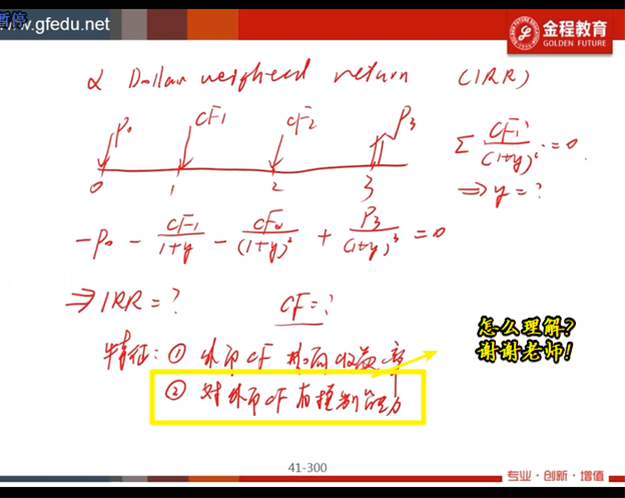 暂停
www.gfedu.net
金程教育
GOLDEN FUTURE
2 Dollar weighted return (IRR)
P₀ CF1 CF2 P3
0 1 2 3
Σ CFi/(1+y)^i = 0
⇒ y = ?
-P₀ - CF1/(1+y) - CF2/(1+y)² + P3/(1+y)³ = 0
⇒ IRR = ? CF = ?
特征: ① 外币CF 影响收益率
② 对外币CF有控制能力
怎么理解?
谢谢老师!
41-300
专业·创新·增值